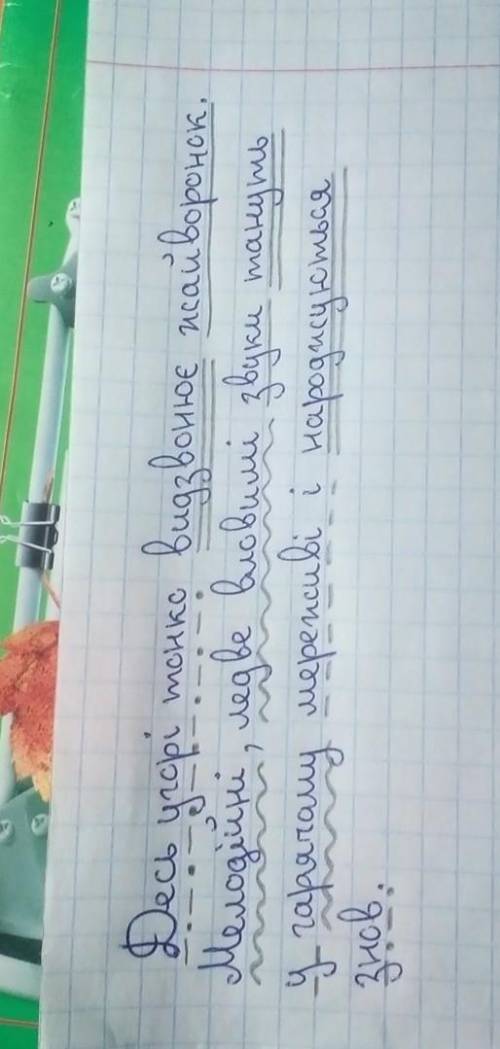 Десь угорі тонко видзвонює жайворонок.
Мелодійні, ледве вловимі звуки тануть
у гарячому мереживі і народжуються
знов.